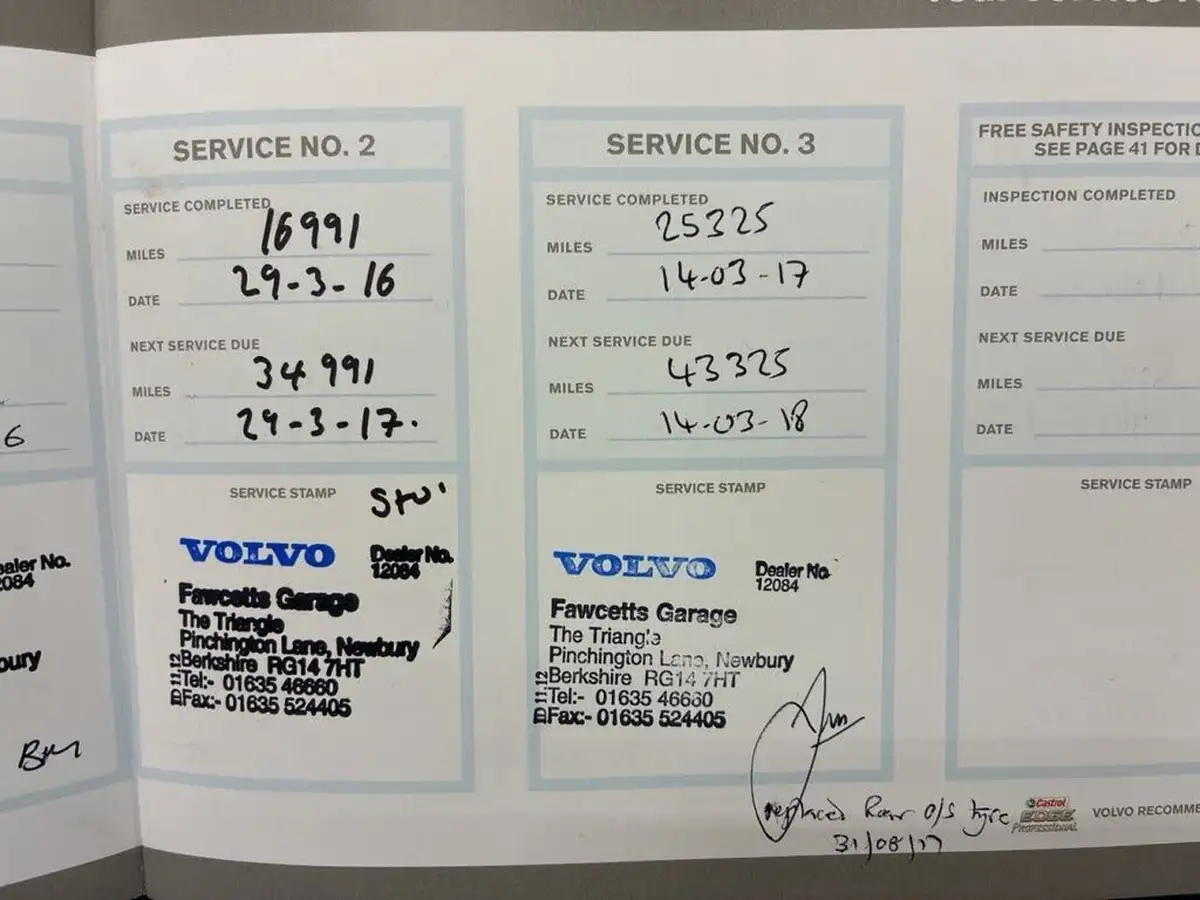 6
ealer No.
2084
bury
SERVICE NO. 2
SERVICE COMPLETED
MILES 16991
DATE 29-3-16
NEXT SERVICE DUE
MILES 34991
DATE 29-3-17.
SERVICE STAMP
VOLVO Dealer No.
12084
Fawcetts Garage
The Triangle
Pinchington Lane, Newbury
Berkshire RG14 7HT
Tel:- 01635 46660
Fax:- 01635 524405
SERVICE NO. 3
SERVICE COMPLETED
MILES 25325
DATE 14-03-17
NEXT SERVICE DUE
MILES 43325
DATE 14-03-18
SERVICE STAMP
VOLVO Dealer No.
12084
Fawcetts Garage
The Triangle
Pinchington Lane, Newbury
Berkshire RG14 7HT
Tel:- 01635 46660
Fax:- 01635 524405
replaced Rear o/s tyre
31/08/17
FREE SAFETY INSPECTIO
SEE PAGE 41 FOR D
INSPECTION COMPLETED
MILES
DATE
NEXT SERVICE DUE
MILES
DATE
SERVICE STAMP
Castrol
EDGE
Professional
VOLVO RECOMME